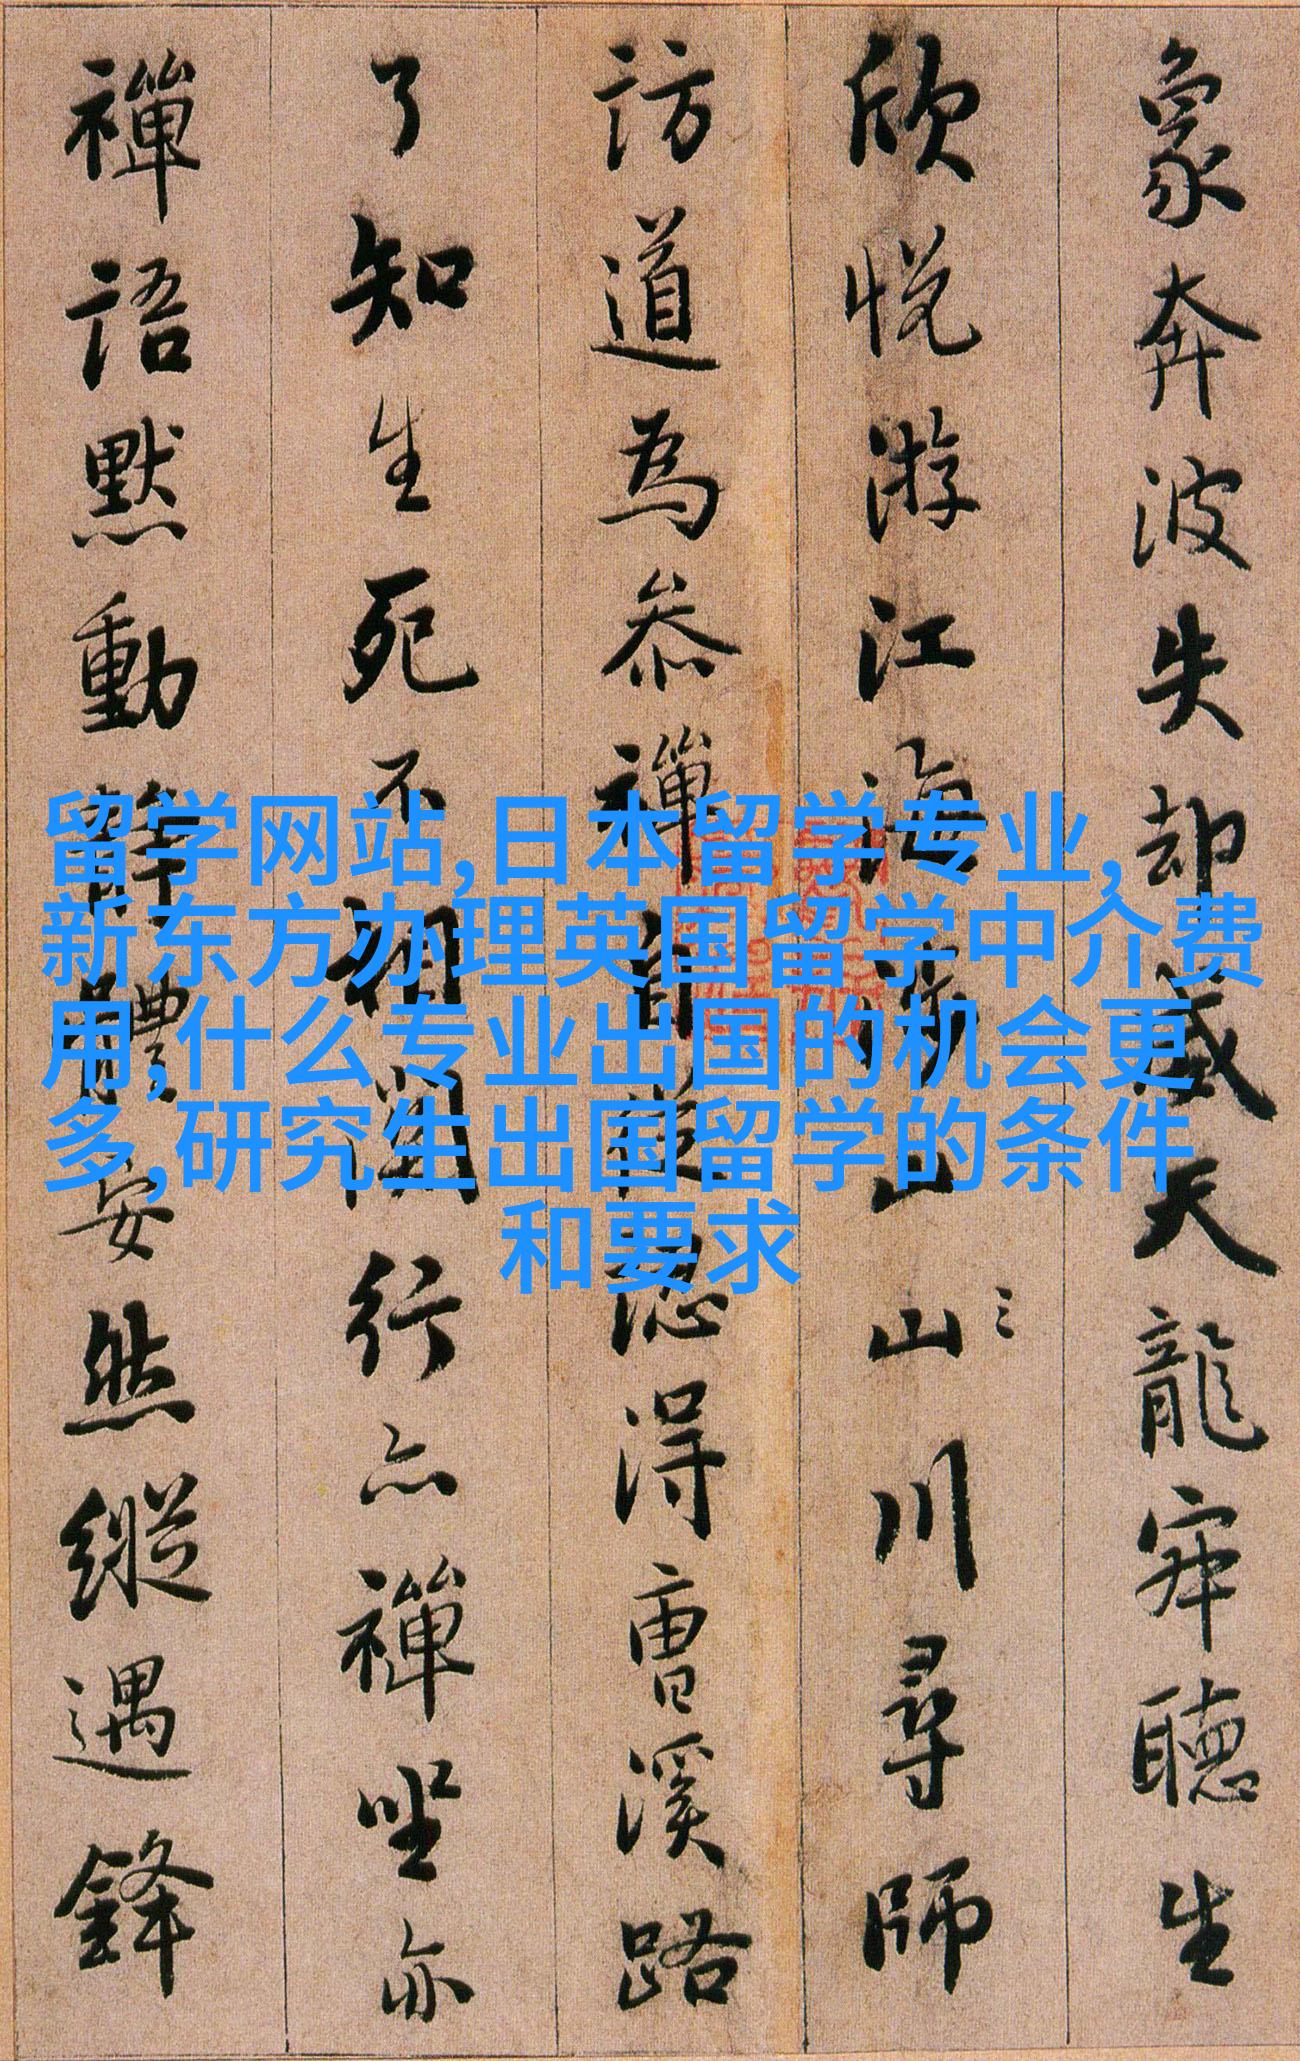 象奔波失却威天龍寂聽生
欣悦游江海山山川尋師
訪道為参禪自從認得曹溪路
了知生死不相關行亦禪坐亦
禪語默動静體安然縱遇鋒
留学网站,日本留学专业,
新东方办理英国留学中介费
用,什么专业出国的机会更
多,研究生出国留学的条件
和要求